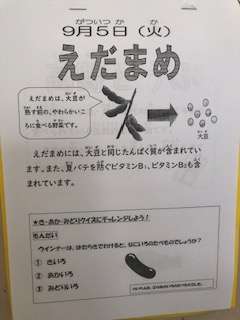 9月5日（火）
えだまめ
えだまめは、大豆が
熟す前の、やわらかいこ
ろに食べる野菜です。
大豆
えだまめには、大豆と同じたんぱく質が含まれてい
ます。また、夏バテを防ぐビタミンB₁、ビタミンB₂も含
まれています。
★き・あか・みどりクイズにチャレンジしよう！
もんだい
ウインナーは、はたらきでわけると、なにいろのたべものでしょうか？
① きいろ
② あかいろ
③ みどりいろ